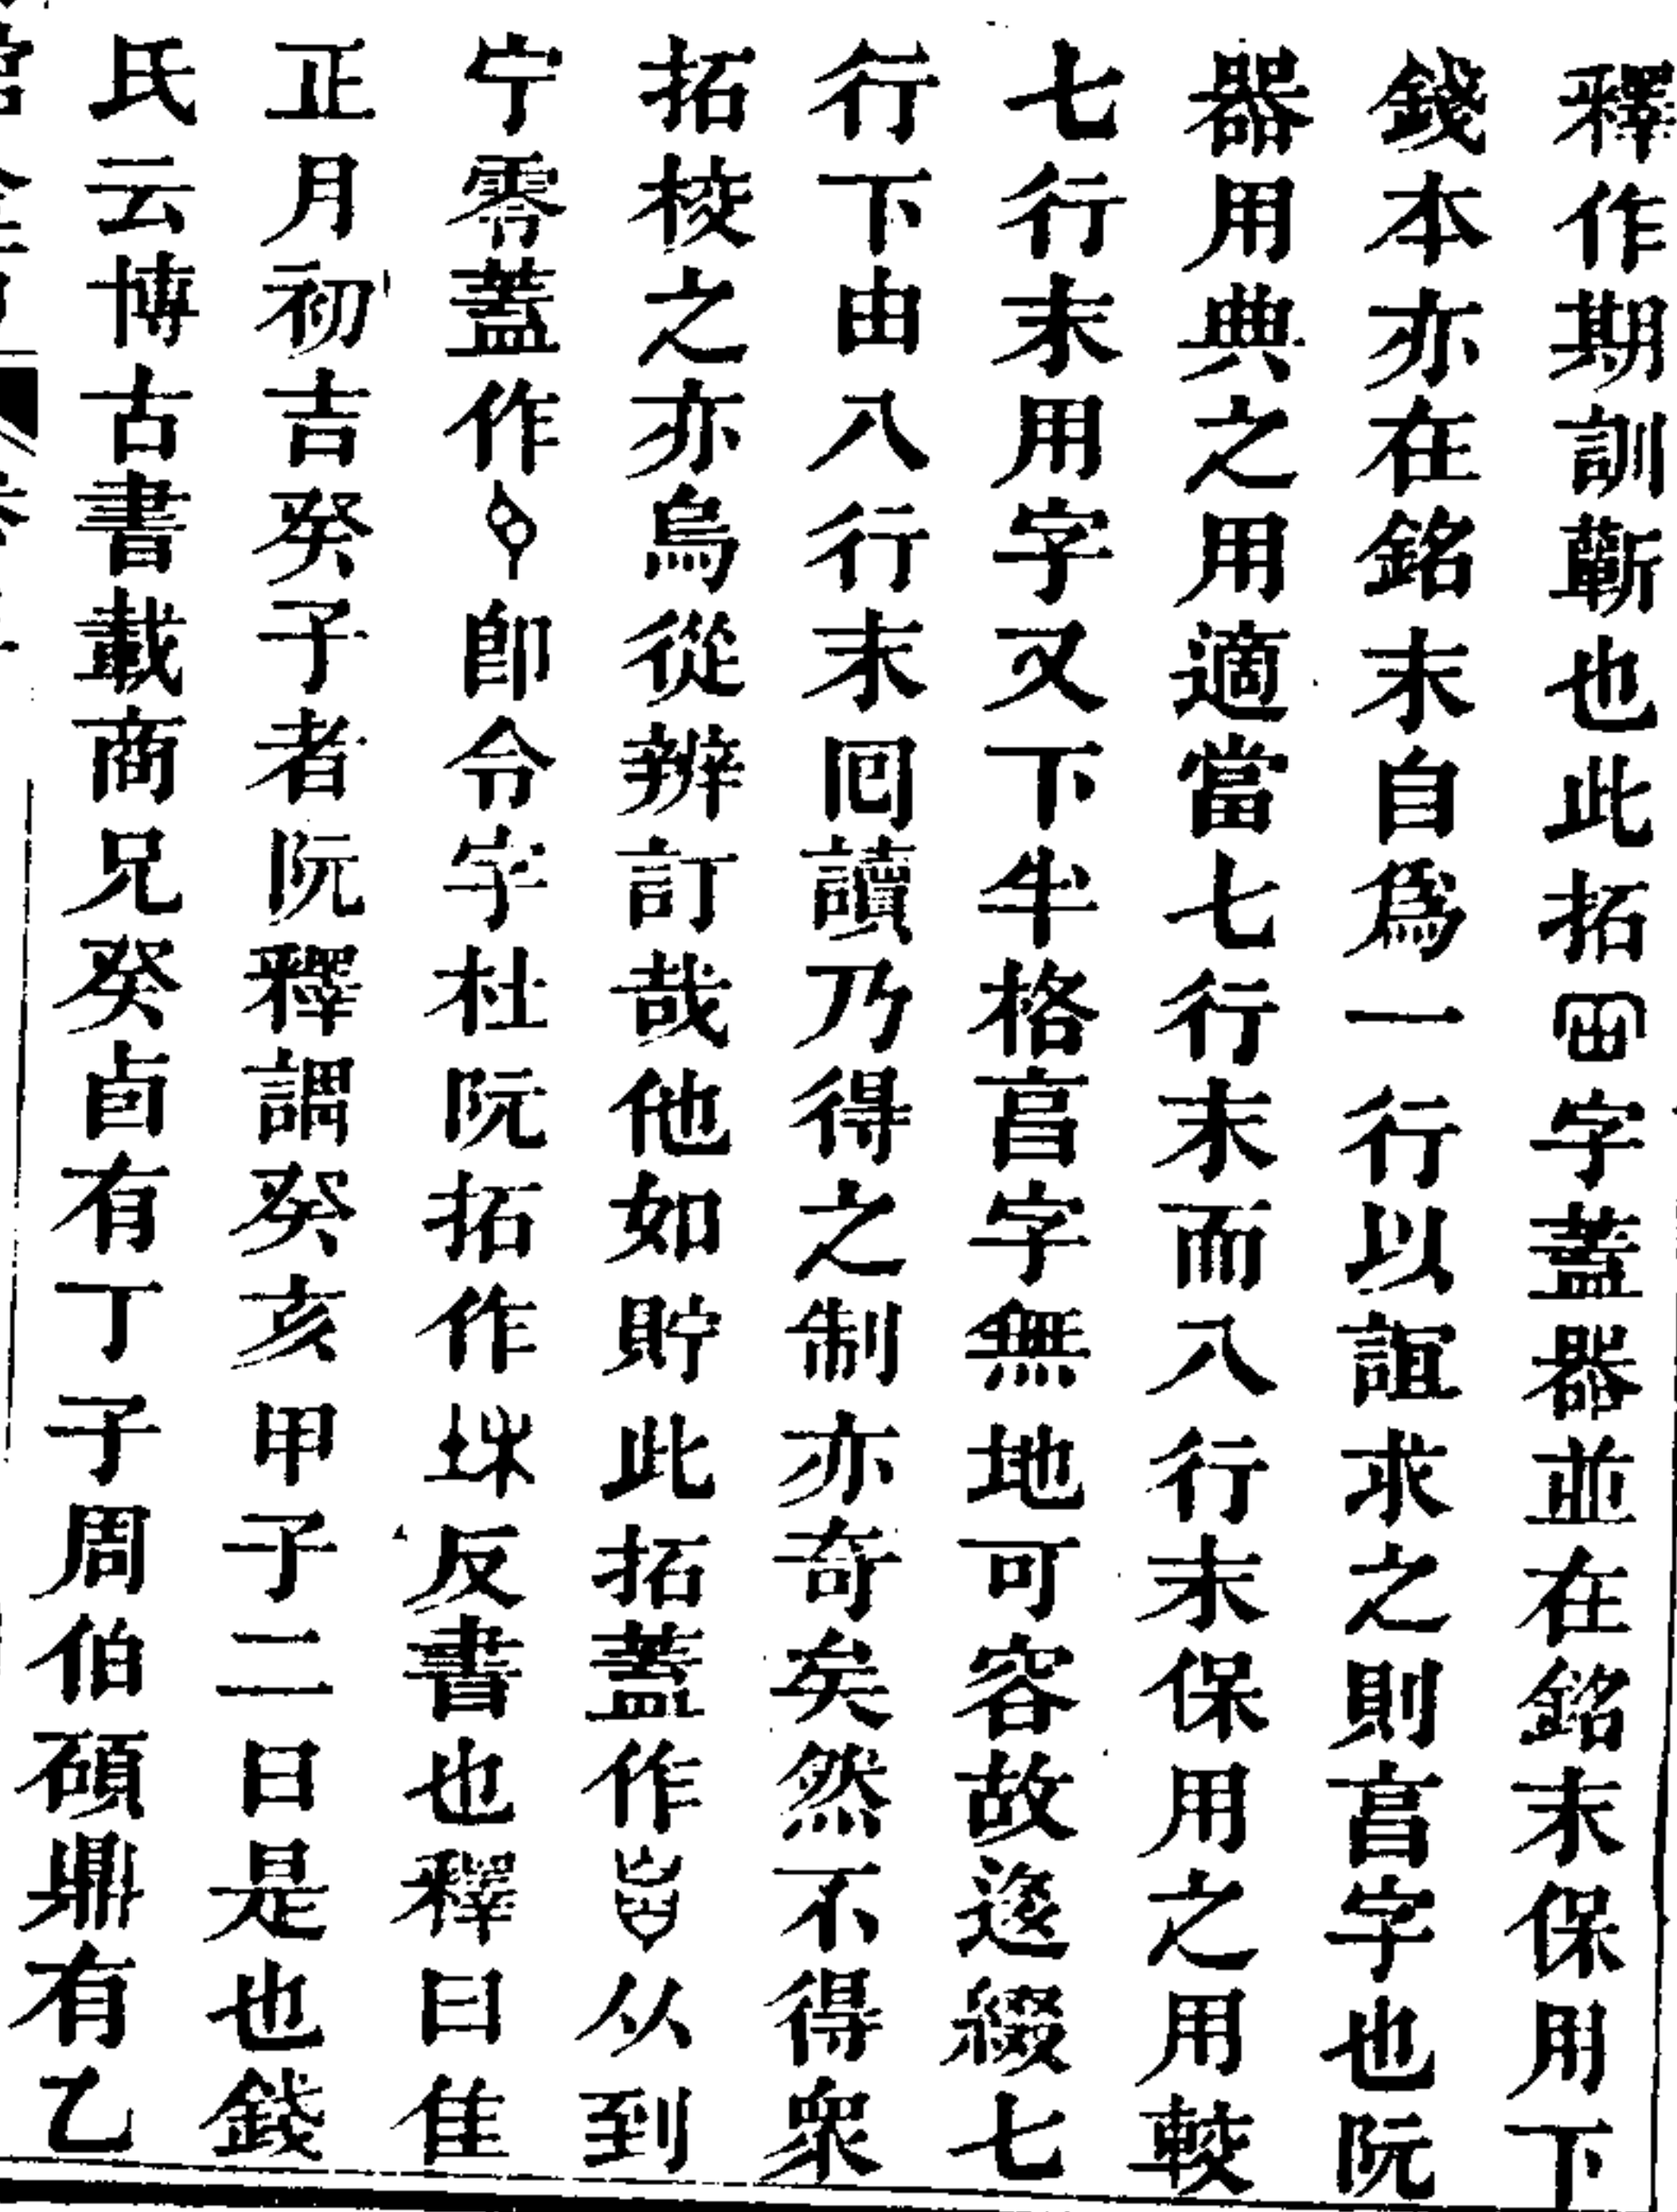 釋作期訓蘄也此拓字蓋器並在銘末保用下
錢本亦在銘末自爲一行以誼求之則亯字也阮
器用典之用適當七行末而八行末保用之用較
七行末用字又下半格亯字無地可容故迻綴七
行下由八行末囘讀乃得之制亦奇矣然不得衆
拓校之亦烏從辨訂哉他如貯此拓蓋作从到
宁零蓋作卽令字杜阮拓作反書也釋曰隹
正月初吉癸子者阮釋謂癸亥甲子二日是也錢
氏云博古書載商兄癸卣有丁子周伯碩鼎有乙